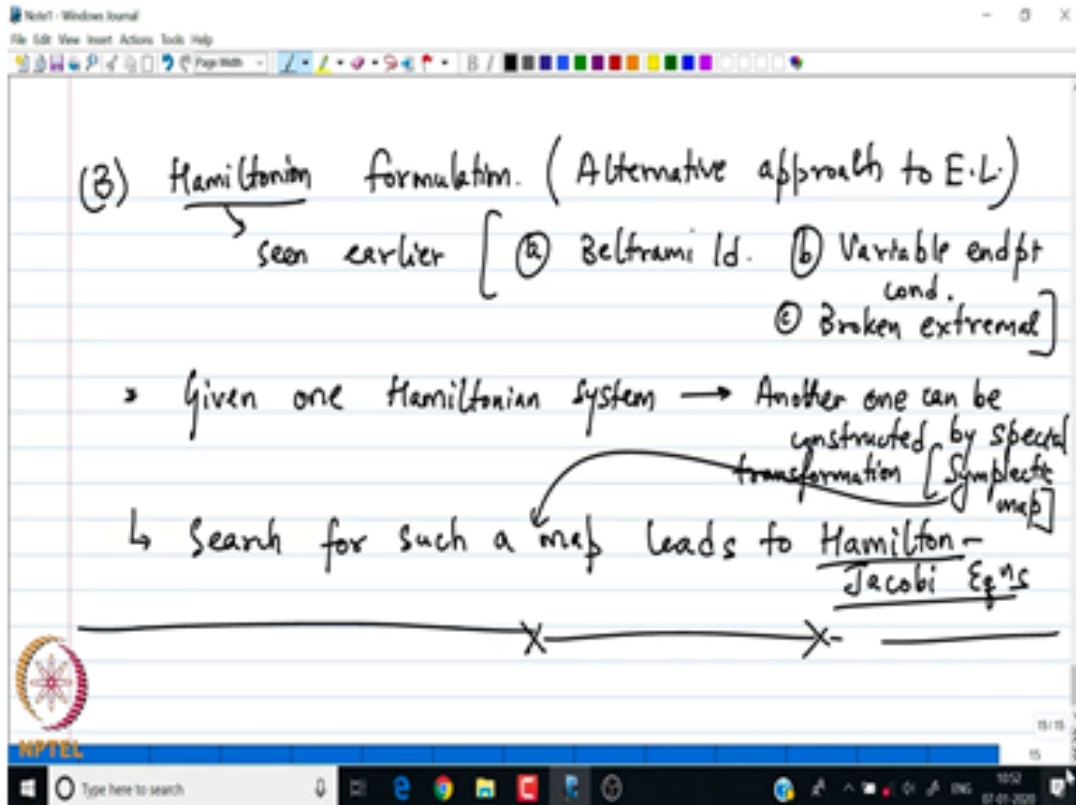 Note1 - Windows Journal
File Edit View Insert Actions Tools Help
Page Width
B I
(3) Hamiltonian formulation. (Alternative approach to E.L.)
seen earlier [ (a) Beltrami Id. (b) Variable endpt
cond.
(c) Broken extremal ]
* Given one Hamiltonian system → Another one can be
constructed by special
transformation [Symplectic
map]
↳ Search for such a map leads to Hamilton-
Jacobi Eqns
15/15
NPTEL
15
Type here to search
ENG
10:52
07-01-2020